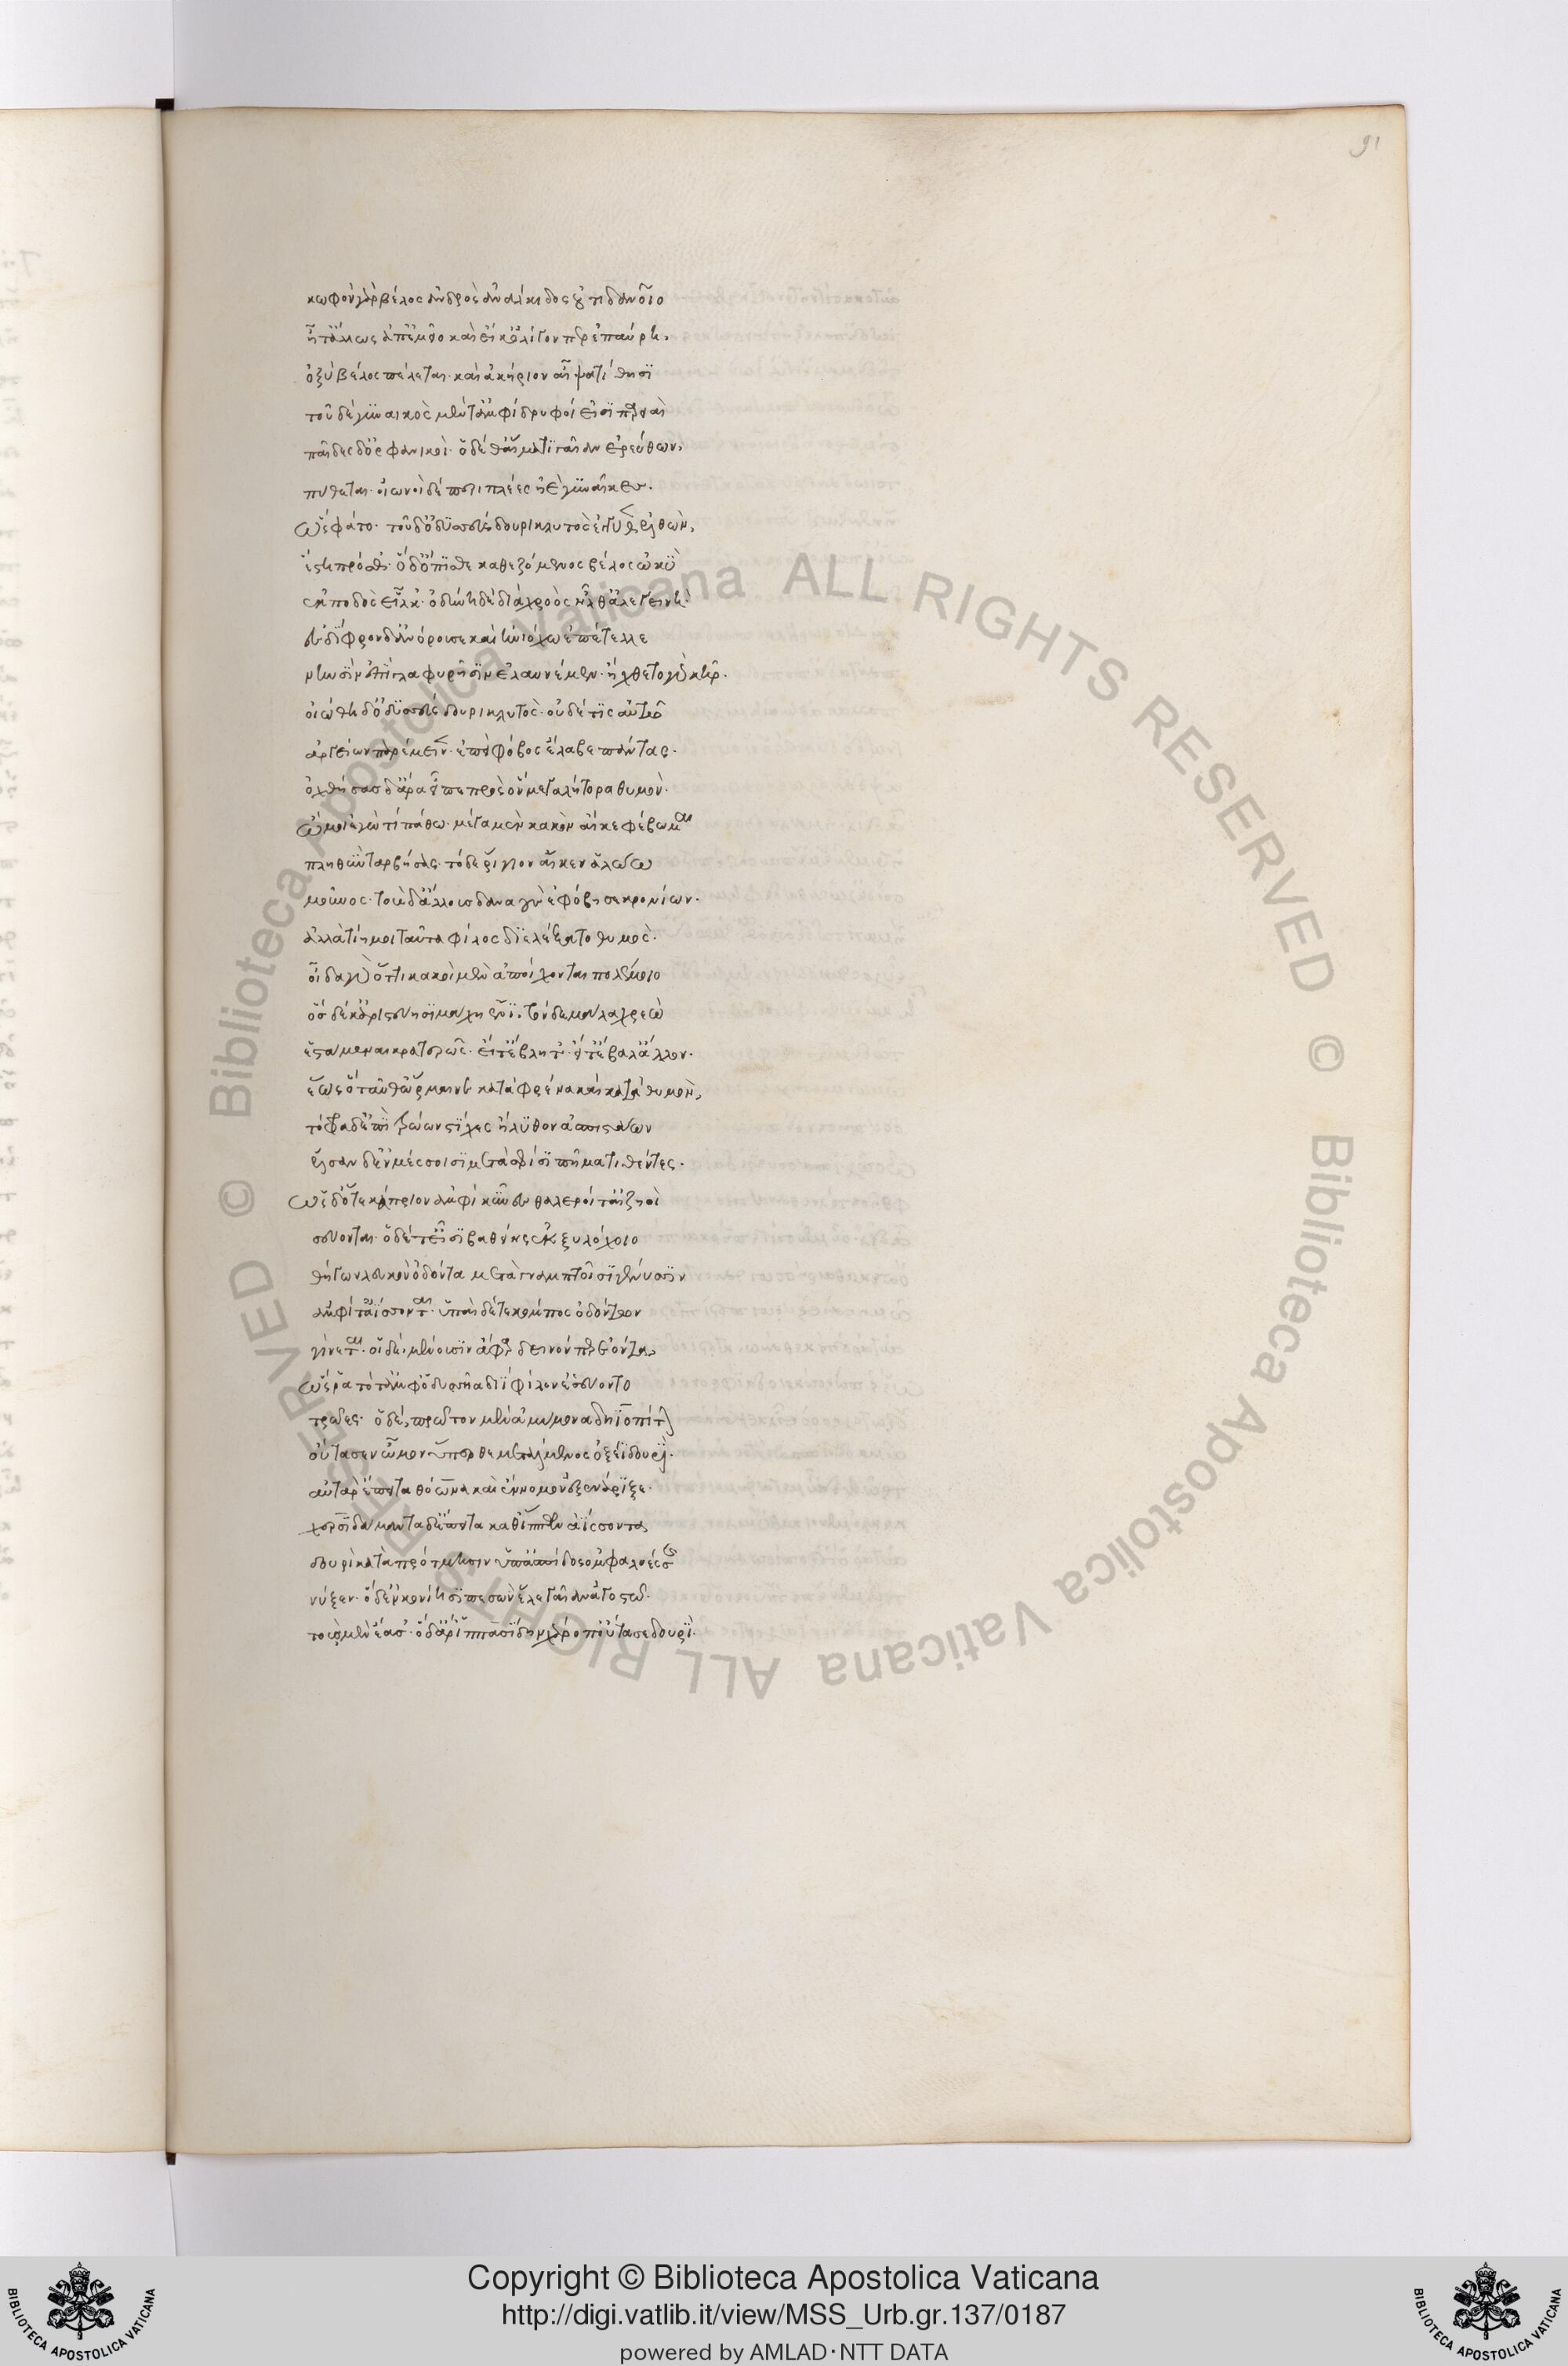 91
κωφὸν γὰρ βέλος ἀνδρὸς ἀνάλκιδος οὐτιδανοῖο
ἦ τ' ἄλλως ὑπ' ἐμεῖο καὶ εἴ κ' ὀλίγον περ ἐπαύρη,
ὀξὺ βέλος πέλεται· καὶ ἀκήριον αἶψα τίθησι
τοῦ δὲ γυναικὸς μὲν τ' ἀμφίδρυφοί εἰσι παρειαὶ
παῖδες δ' ὀρφανικοί· ὁ δέ θ' αἵματι γαῖαν ἐρεύθων,
πύθεται· οἰωνοὶ δὲ περὶ πλέες ἠὲ γυναῖκες.
ὣς φάτο· τοῦ δ' ὀδυσσεὺς δουρικλυτὸς ἐγγύθεν ἐλθὼν,
ἔστη πρόσθ'· ὁ δ' ὄπισθε καθεζόμενος βέλος ὠκὺ
ἐκ ποδὸς εἷλκ'· ὀδύνη δὲ διὰ χροὸς ἦλθ' ἀλεγεινή·
ἐς δίφρον δ' ἀνόρουσε καὶ ἡνιόχω ἐπέτελλε
νηυσὶν ἐπὶ γλαφυρῆσιν ἐλαυνέμεν· ἤχθετο γὰρ κῆρ.
οἰώθη δ' ὀδυσσεὺς δουρικλυτὸς· οὐδέ τις αὐτῶ
ἀργείων παρέμεινεν· ἐπεὶ φόβος ἔλαβε πάντας.
ὀχθήσας δ' ἄρα εἶπε πρὸς ὃν μεγαλήτορα θυμὸν.
ὤ μοι ἐγὼ τί πάθω· μέγα μὲν κακὸν αἴ κε φέβωμαι
πληθὺν ταρβήσας· τὸ δὲ ῥίγιον αἴ κεν ἁλώω
μοῦνος· τοὺς δ' ἄλλους δαναοὺς ἐφόβησε κρονίων.
ἀλλὰ τίη μοι ταῦτα φίλος διελέξατο θυμὸς.
οἶδα γὰρ ὅττι κακοὶ μὲν ἀποίχονται πολέμοιο
ὃς δέ κ' ἀριστεύησι μάχη ἔνι· τὸν δὲ μάλα χρεὼ
ἑστάμεναι κρατερῶς· εἴτ' ἔβλητ'· εἴτ' ἔβαλ' ἄλλον.
ἕως ὃ ταῦθ' ὥρμαινε κατὰ φρένα καὶ κατὰ θυμὸν,
τόφρα δ' ἐπὶ τρώων στίχες ἤλυθον ἀσπιστάων
ἔλσαν δ' ἐν μέσσοισι μετὰ σφίσι πῆμα τιθέντες.
ὡς δ' ὅτε κάπριον ἀμφὶ κύνες θαλεροί τ' αἰζηοὶ
σεύονται· ὁ δέ τ' εἶσι βαθείης ἐκ ξυλόχοιο
θήγων λευκὸν ὀδόντα μετὰ γναμπτοῖσι γένυσσιν
ἀμφὶ δέ τ' ἀΐσσονται· ὑπαὶ δέ τε κόμπος ὀδόντων
γίνεται· οἱ δὲ μένουσιν ἄφαρ δεινόν περ ἐόντα,
ὣς ῥα τότ' ἀμφ' ὀδυσῆα διῒ φίλον ἐσσεύοντο
τρῶες· ὁ δὲ πρῶτον μὲν ἀμύμονα δηϊοπίτην
οὔτασεν ὦμον ὕπερθε μεταλμενος ὀξέϊ δουρί.
αὐτὰρ ἔπειτα θόωνα καὶ ἔννομον ἐξενάριξε.
χερσιδάμαντα δ' ἔπειτα καθ' ἵππων ἀΐσσοντα,
δουρὶ κατὰ πρότμησιν ὑπ' ἀσπίδος ὀμφαλοέσσης
νύξεν· ὁ δ' ἐν κονίησι πεσὼν ἕλε γαῖαν ἀγοστῶ.
τοὺς μὲν ἔασ'· ὁ δ' ἄρ' ἱππασίδην χάροπ' οὔτασε δουρί.
Copyright © Biblioteca Apostolica Vaticana
http://digi.vatlib.it/view/MSS_Urb.gr.137/0187
powered by AMLAD·NTT DATA